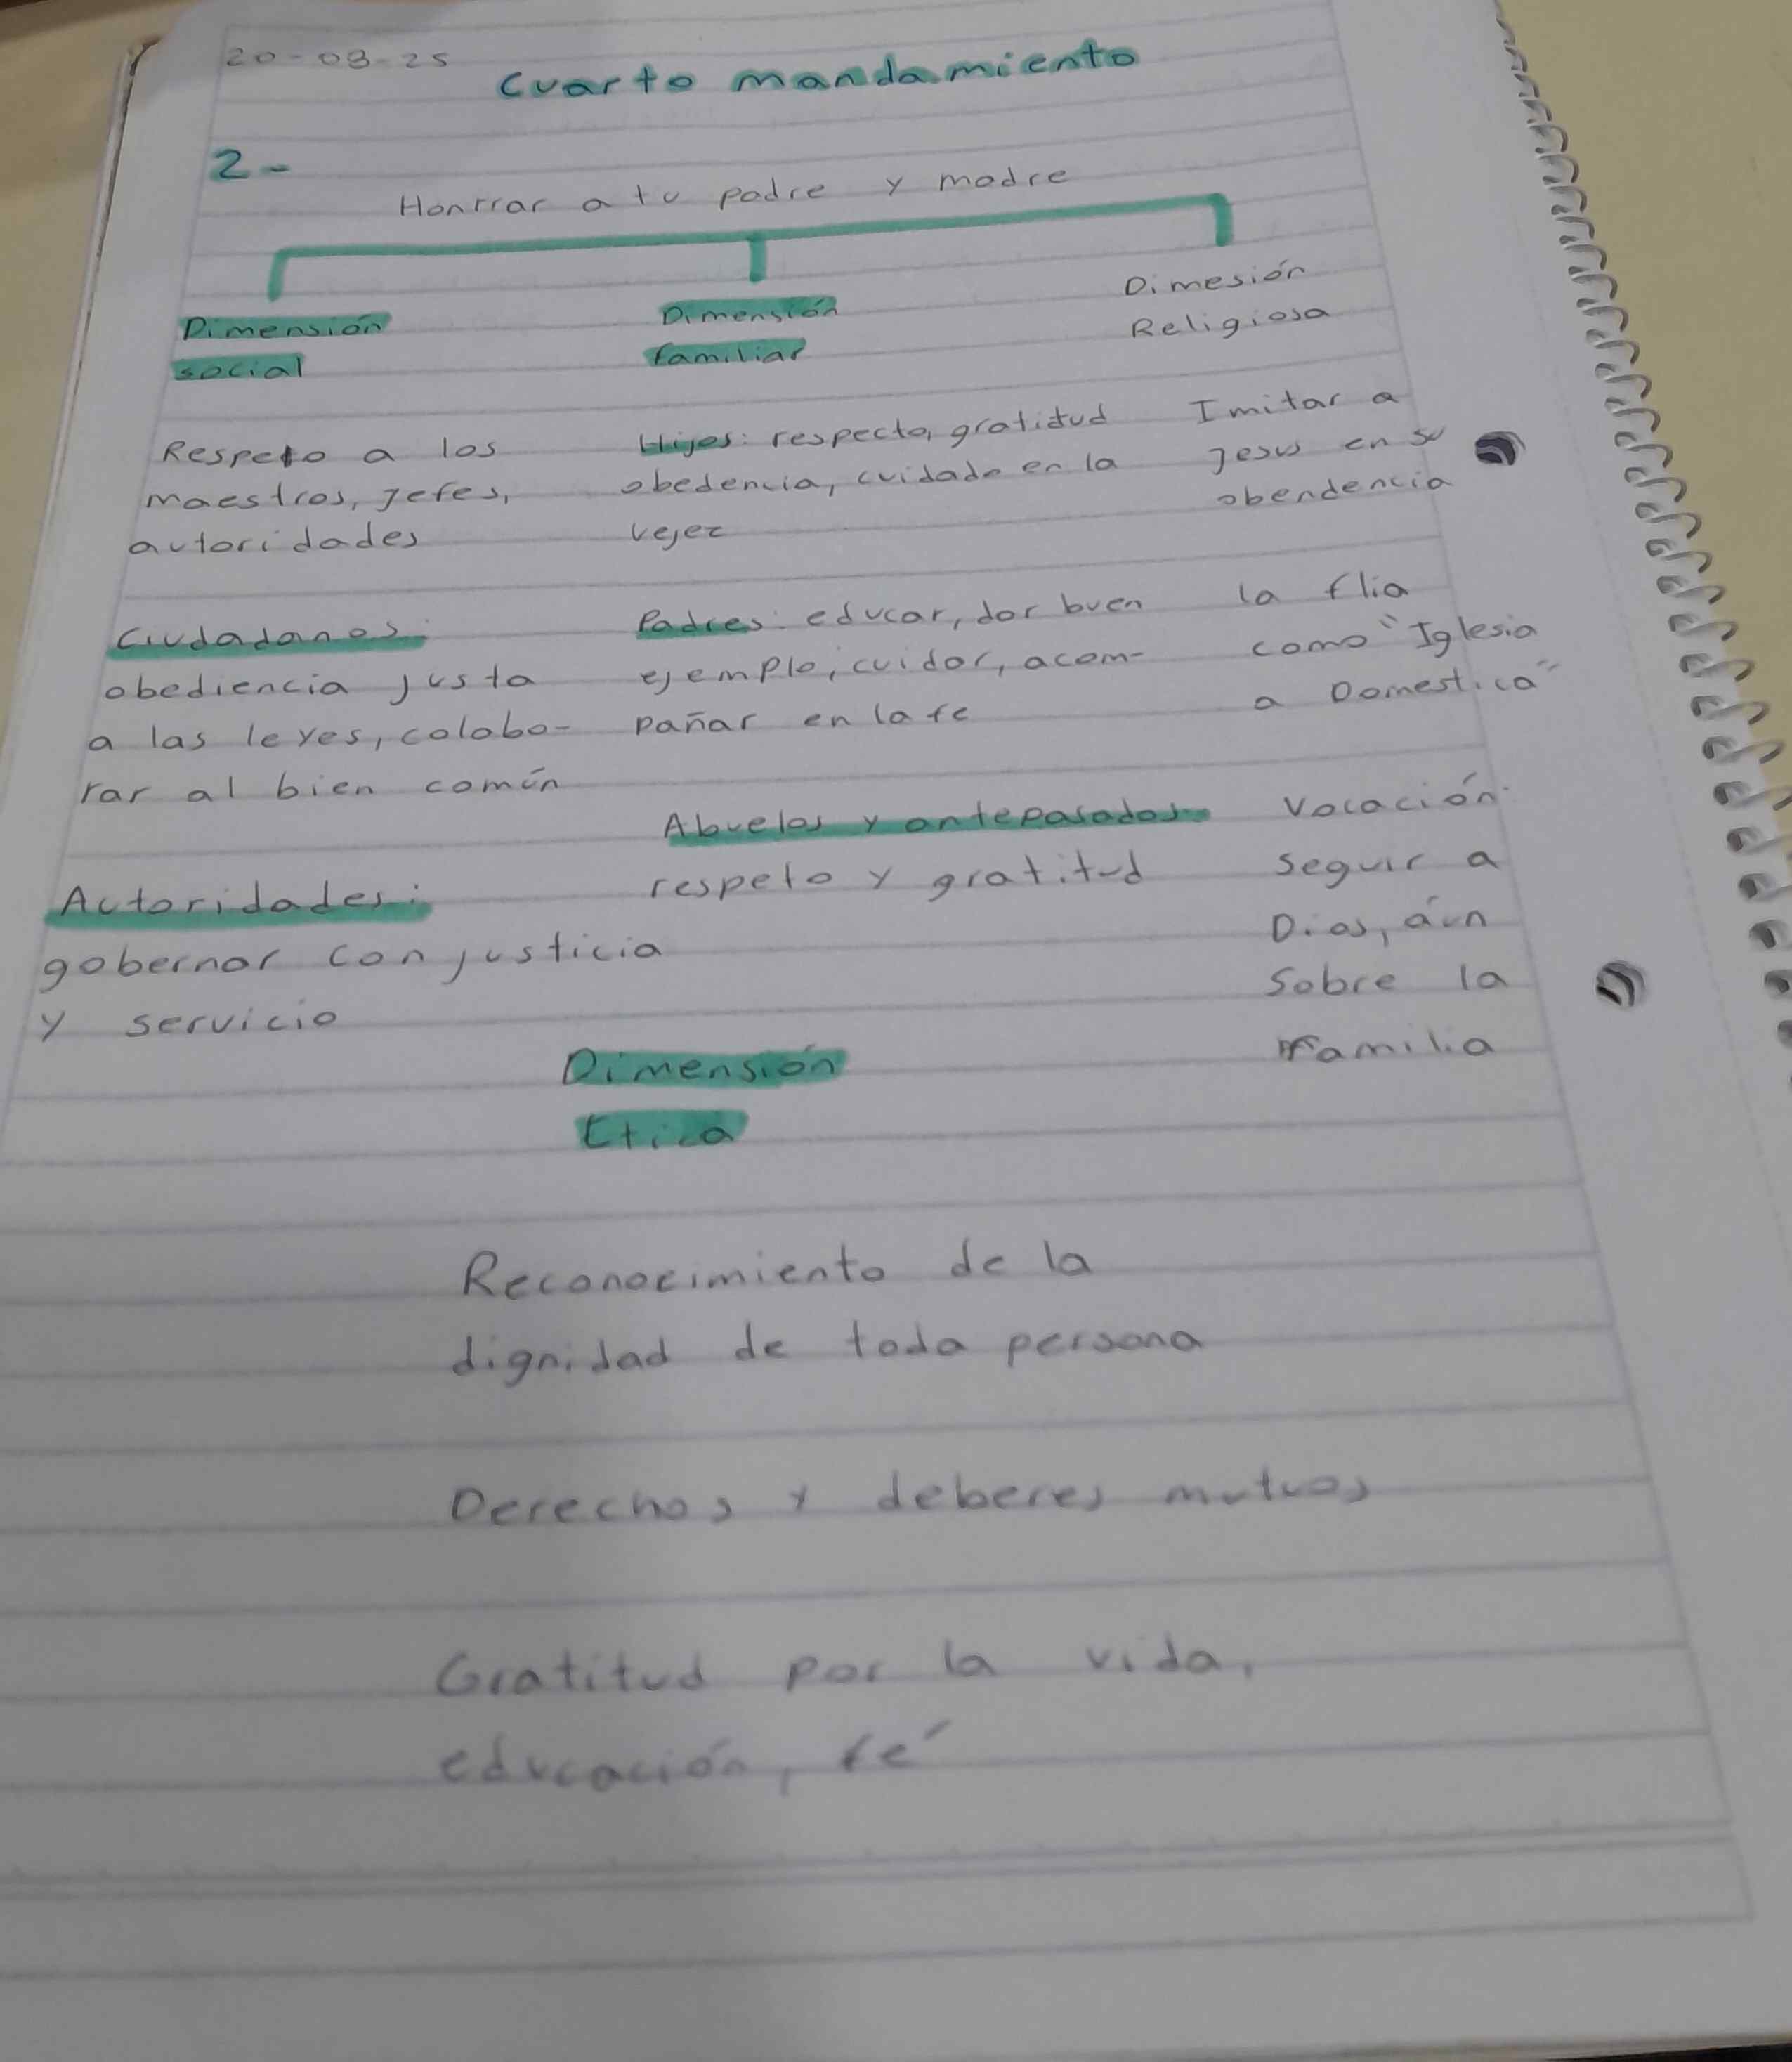 20-08-25
Cuarto mandamiento
2-
Honrrar a tu padre y madre
Dimensión
social
Respeto a los
maestros, jefes,
autoridades
Ciudadanos:
obediencia justa
a las leyes, colabo-
rar al bien común
Autoridades:
gobernar con justicia
y servicio
Dimensión
familiar
Hijos: respecto, gratitud
obedencia, cuidado en la
vejez
Padres: educar, dar buen
ejemplo, cuidar, acom-
pañar en la fe
Abuelos y antepasados:
respeto y gratitud
Dimesión
Religiosa
Imitar a
Jesus en su
obendencia
la flia
como "Iglesia
a Domestica"
Vocación:
seguir a
Dios, áun
sobre la
Familia
Dimensión
Etica
Reconocimiento de la
dignidad de toda persona
Derechos y deberes mutuos
Gratitud por la vida,
educación, fé